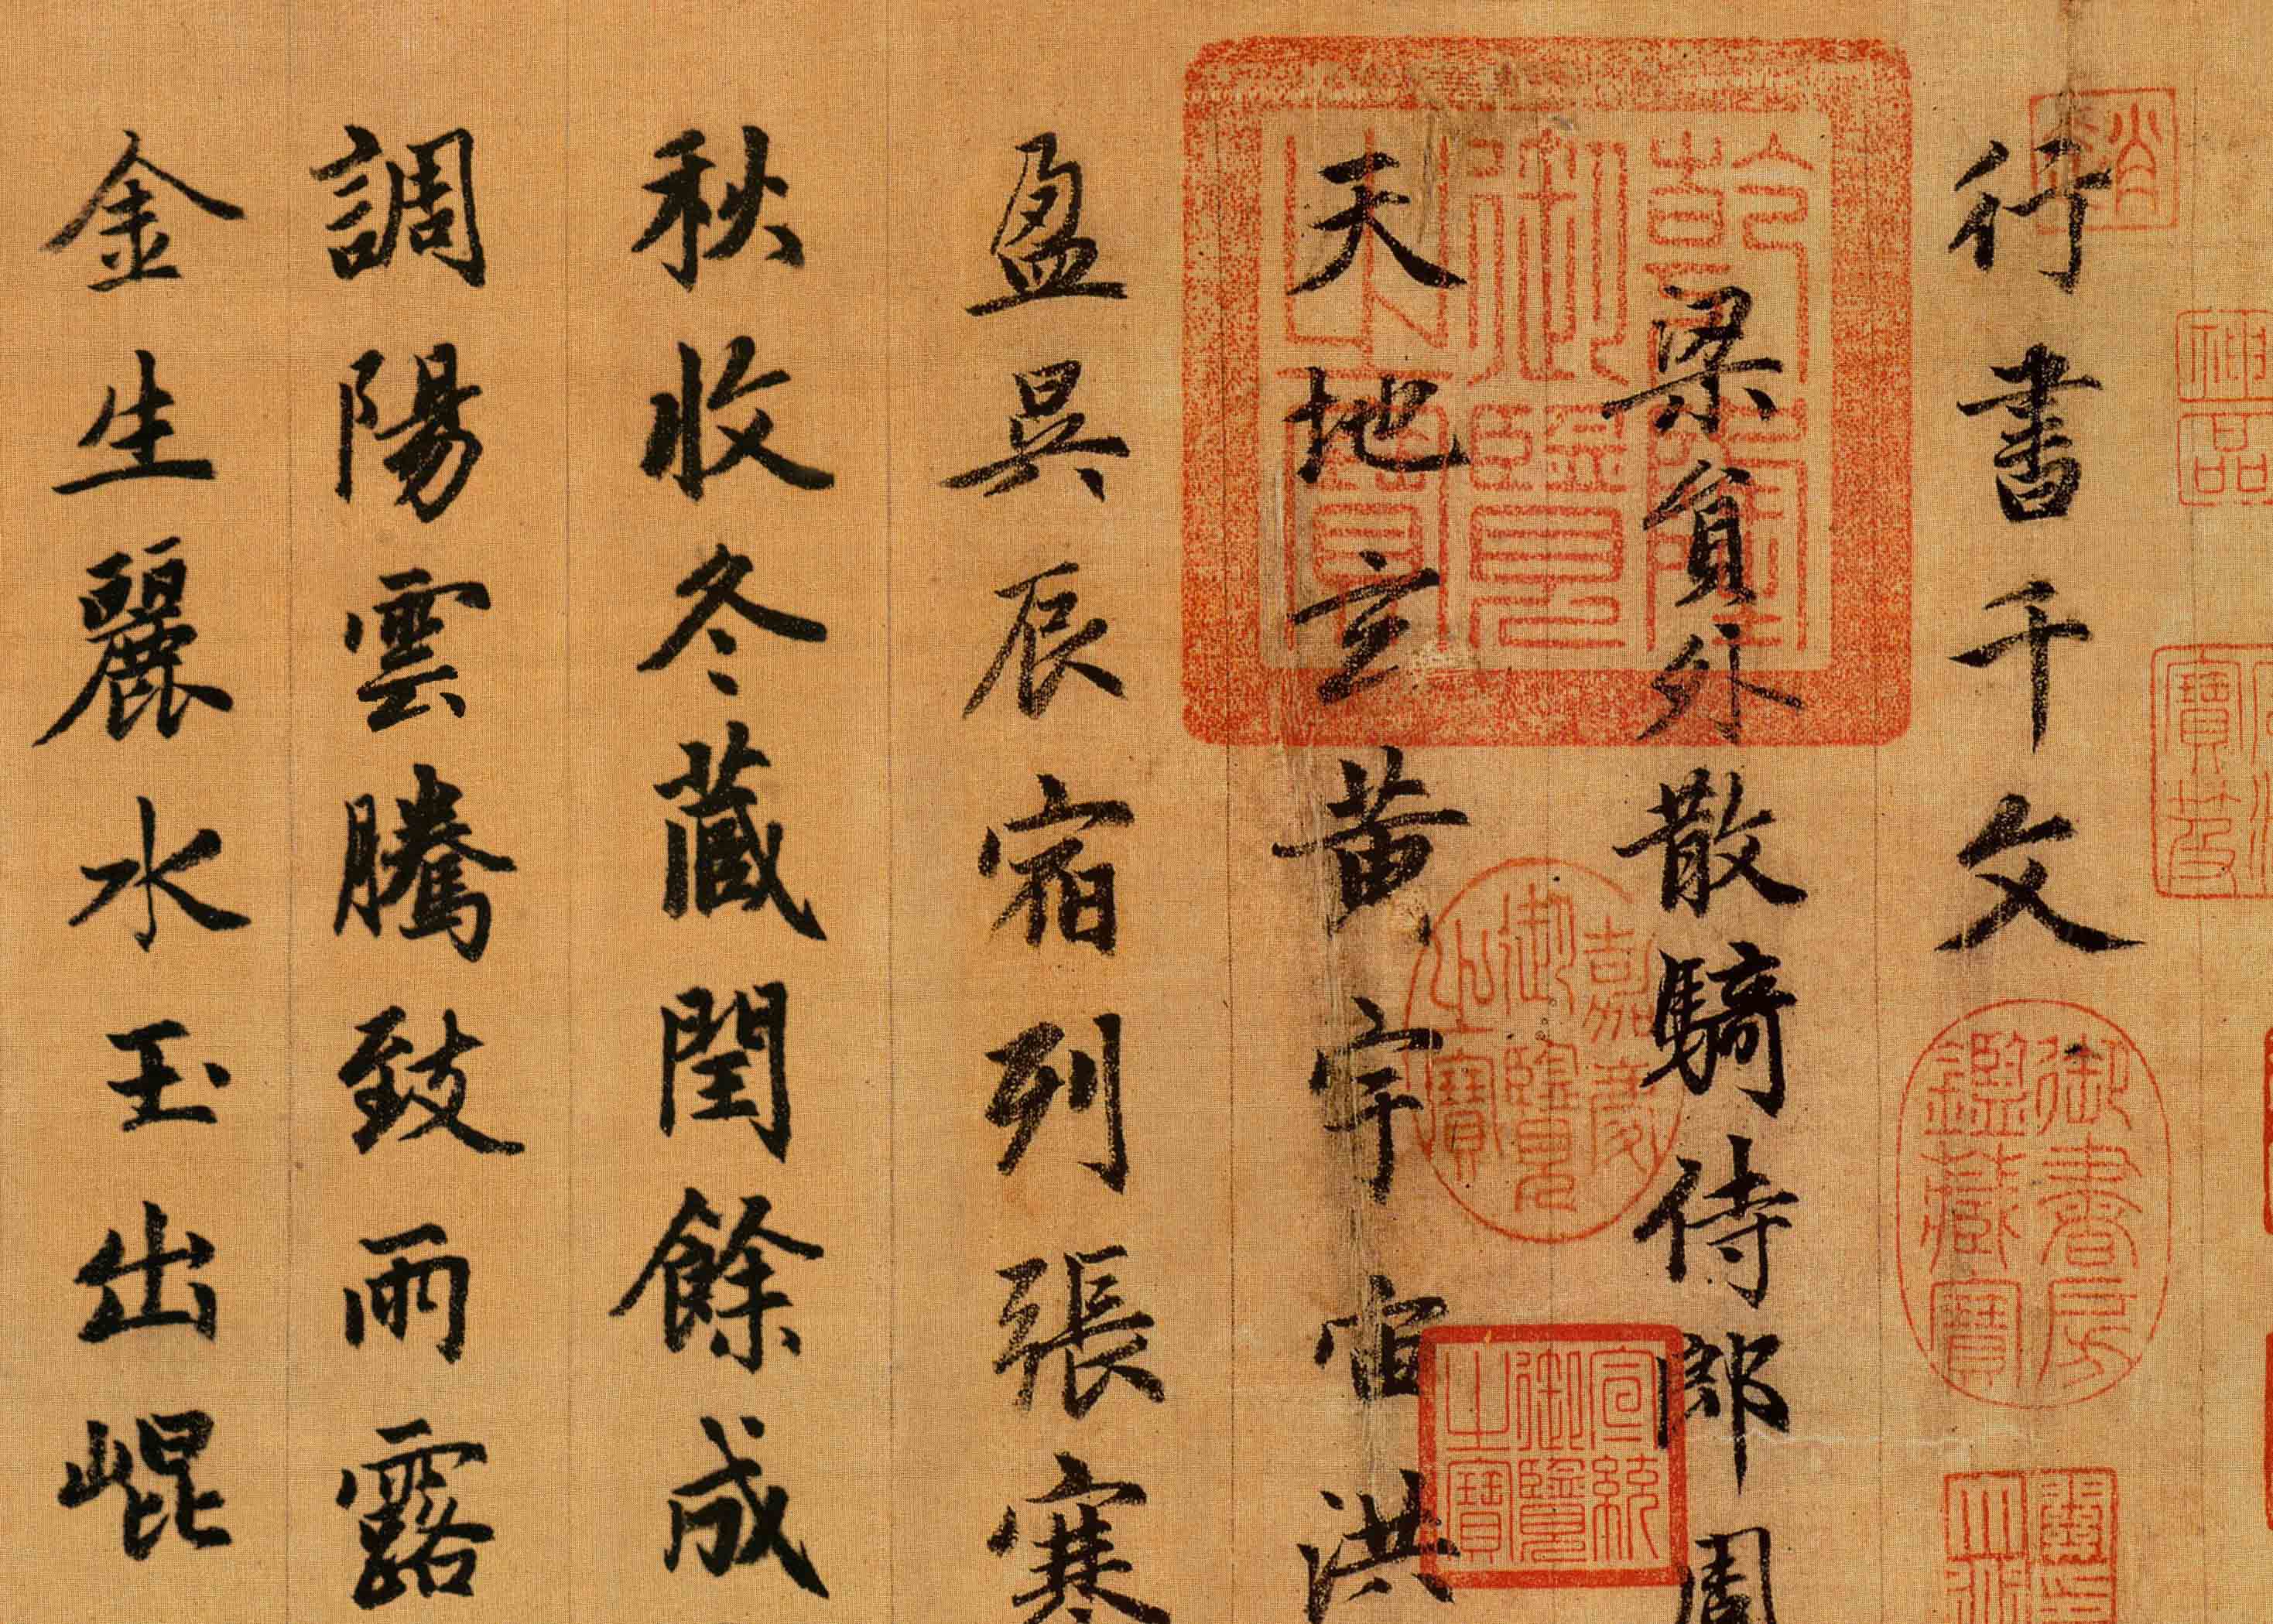 行書千文
梁貟外散騎侍郎周
天地玄黄宇宙洪
盈昃辰宿列張寒
秋收冬藏閏餘成
調陽雲騰致雨露
金生麗水玉出崐
乾隆御覽之寶
嘉慶御覽之寶
宣統御覽之寶
御書房鑑藏寶
神品